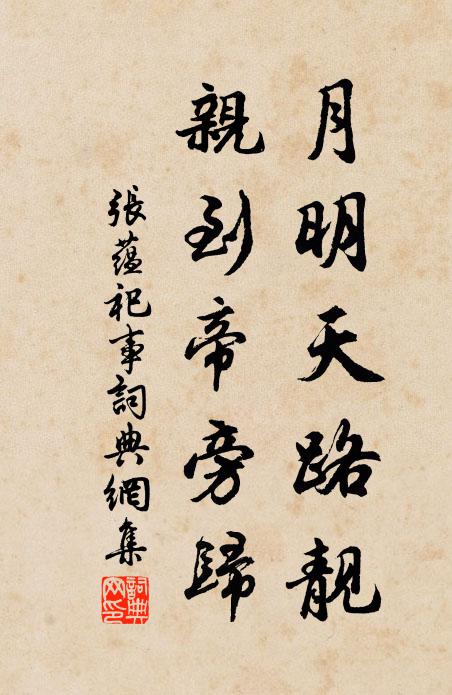 月明天路靚
親到帝旁歸
張蘊祀事詞典網集
詞典網印